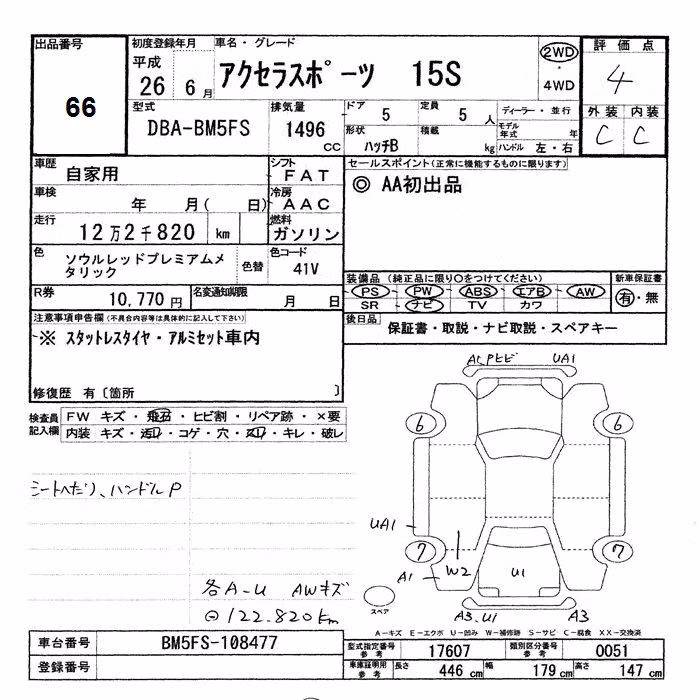 出品番号
66
初度登録年月
平成
26 6 月
車名・グレード
アクセラスポーツ 15S
2WD
・
4WD
評価点
4
外装 内装
C C
型式
DBA-BM5FS
排気量
1496
CC
ドア 5
定員 5 人
形状 ハッチB
積載 kg
ディーラー・並行
モデル年式 年
ハンドル 左・右
車歴 自家用
シフト FAT
車検 年 月( 日)
冷房 AAC
走行 12万2千820 km
燃料 ガソリン
色 ソウルレッドプレミアムメタリック
色替
色コード 41V
R券 10,770円
名変通知期限 月 日
セールスポイント(正常に機能するものに限ります)
◎ AA初出品
装備品 (純正品に限り○をつけてください)
PS・PW・ABS・エアB・AW
SR ナビ TV カワ
新車保証書
有・無
後日品
保証書・取説・ナビ取説・スペアキー
注意事項申告欄(不具合内容等は具体的に記入して下さい)
※ スタットレスタイヤ・アルミセット車内
修復歴 有〔箇所 〕
検査員記入欄
FW キズ・飛石・ヒビ割・リペア跡・×要
内装 キズ・汚レ・コゲ・穴・スレ・キレ・破レ
シートへたり、ハンドルP
各A-U AWキズ
⊖122.820km
A1,Pヒビ UA1
6 6
UA1
7 7
W2
A1
U1
スペア
A3.U1 A3
A-キズ E-エクボ U-凹み W-補修跡 S-サビ C-腐食 XX-交換済
車台番号 BM5FS-108477
登録番号
型式指定番号参考 17607
類別区分番号参考 0051
車庫証明用参考 長さ 446 cm 幅 179 cm 高さ 147 cm